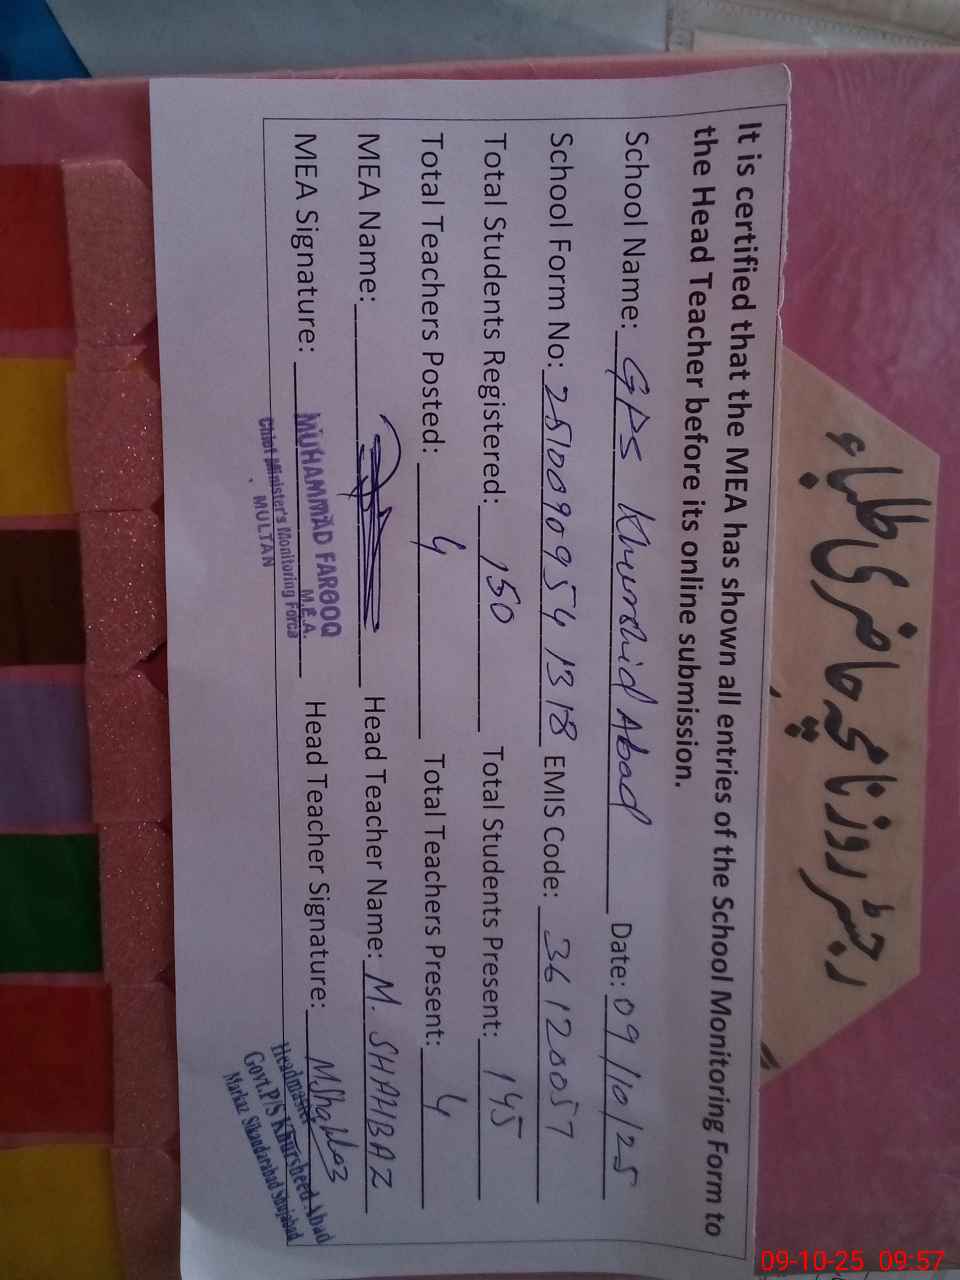 رجسٹر روزنامچہ حاضری طلباء
It is certified that the MEA has shown all entries of the School Monitoring Form to
the Head Teacher before its online submission.
School Name: GPS Khurshid Abad Date: 09/10/25
School Form No: 2510090954 1318 EMIS Code: 36120057
Total Students Registered: 150 Total Students Present: 145
Total Teachers Posted: 4 Total Teachers Present: 4
MEA Name: Head Teacher Name: M. SHAHBAZ
MEA Signature: Head Teacher Signature: M.Shahbaz
MUHAMMAD FAROOQ
M.E.A.
Chief Minister's Monitoring Force
MULTAN
Headmaster
Govt.P/S Khursheed Abad
Markaz Sikandarabad Shujabad
09-10-25 09:57